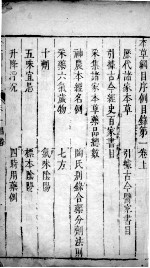 本草綱目序例目錄第一卷上
歷代諸家本草 引據古今醫家書目
引據古今經史百家書目
采集諸家本草藥品總數
神農本經名例 陶氏別錄合藥分劑法則
采藥六氣歲物 七方
十劑 氣味陰陽
五味宜忌 標本陰陽
升降浮沉 四時用藥例